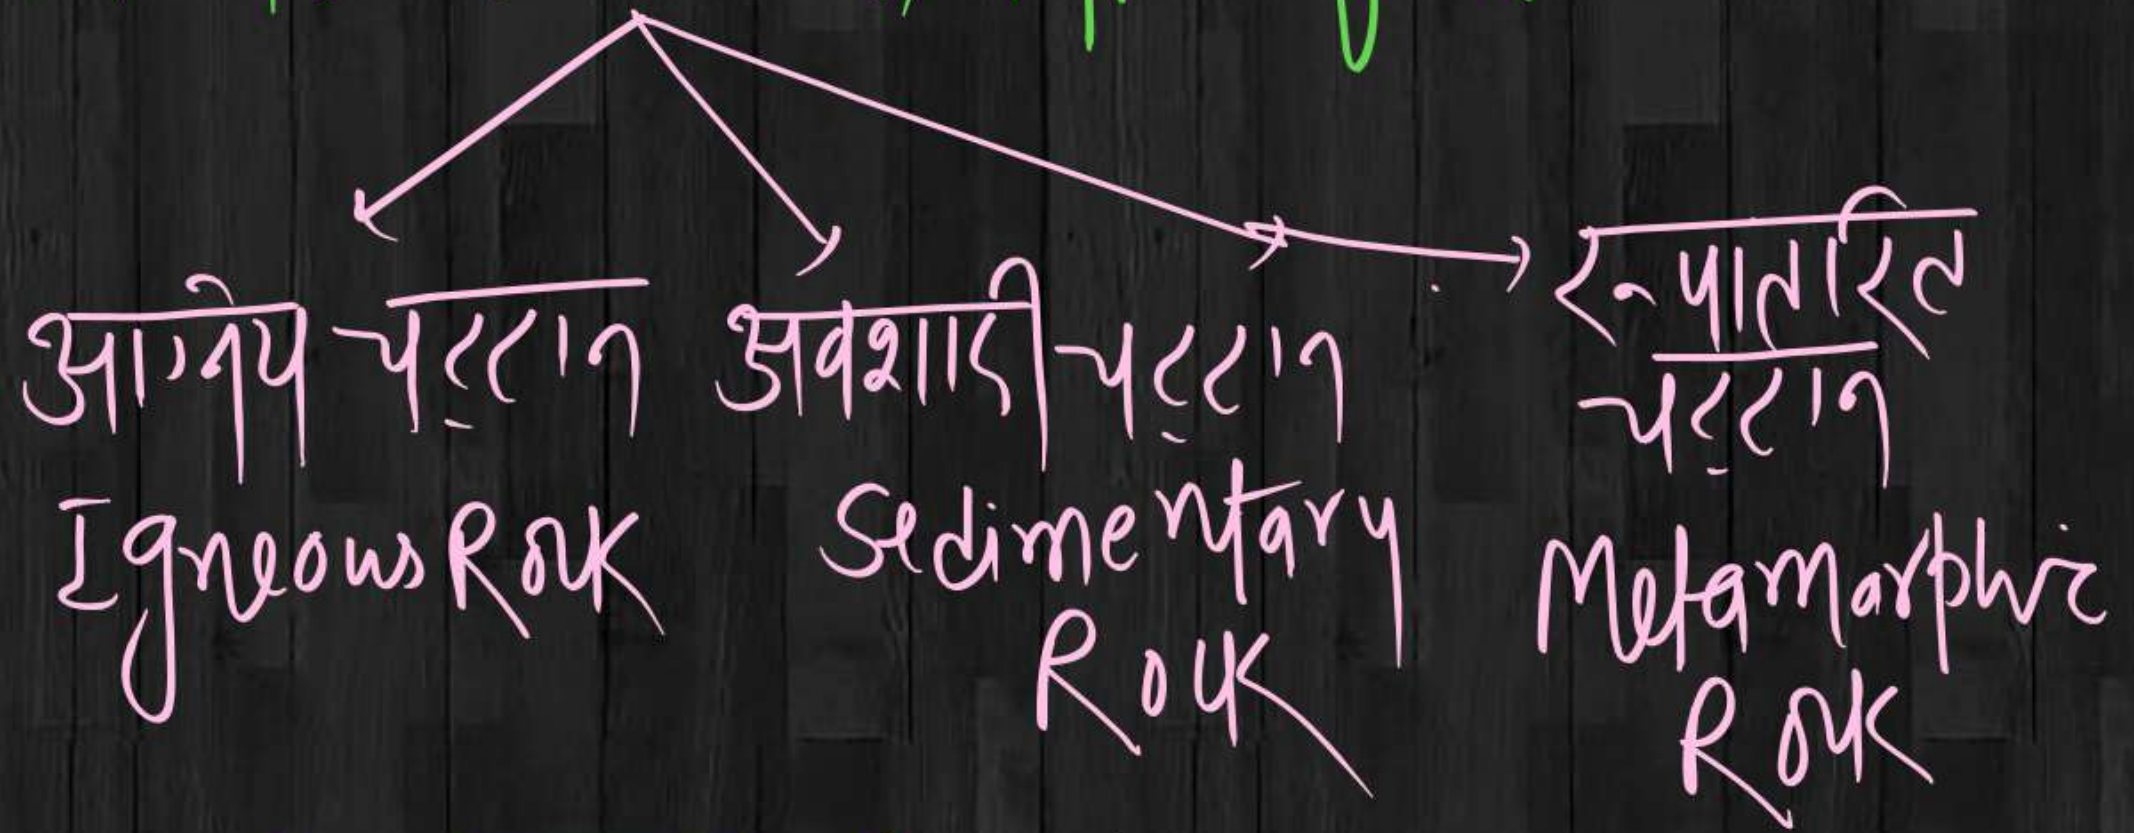 आग्नेय चट्टान
Igneous Rock
अवशादी चट्टान
Sedimentary
Rock
रूपातरित
चट्टान
Metamorphic
Rock